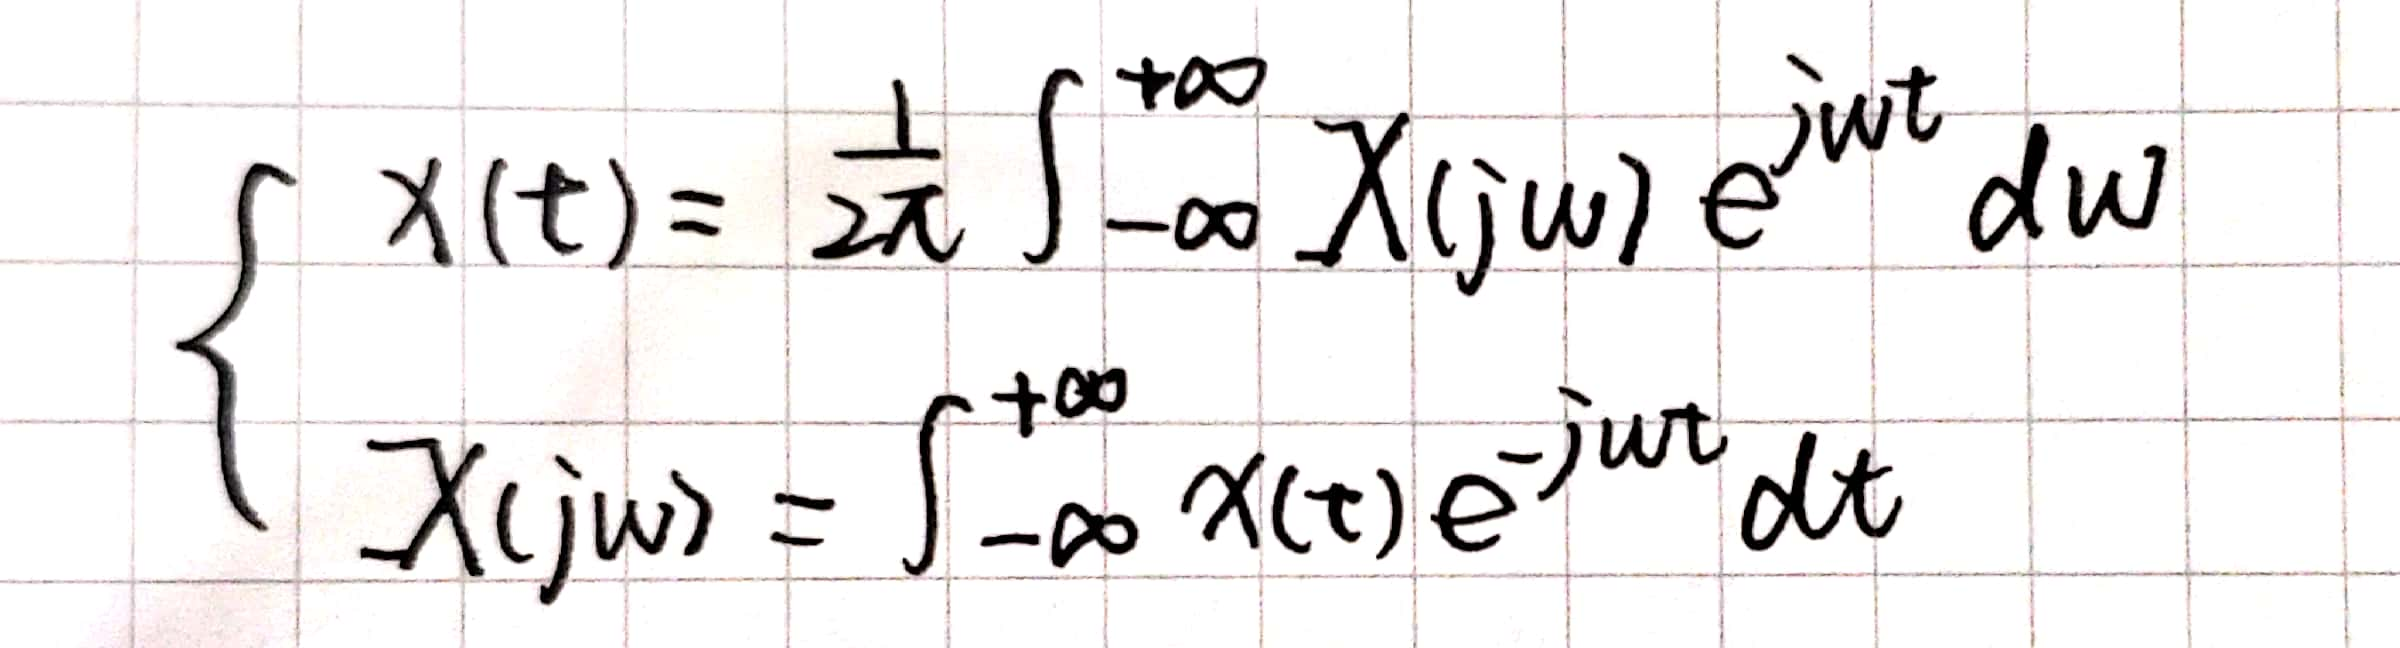 x(t) = \frac{1}{2\pi} \int_{-\infty}^{+\infty} X(jω) e^{jωt} dω
X(jω) = \int_{-\infty}^{+\infty} x(t) e^{-jωt} dt